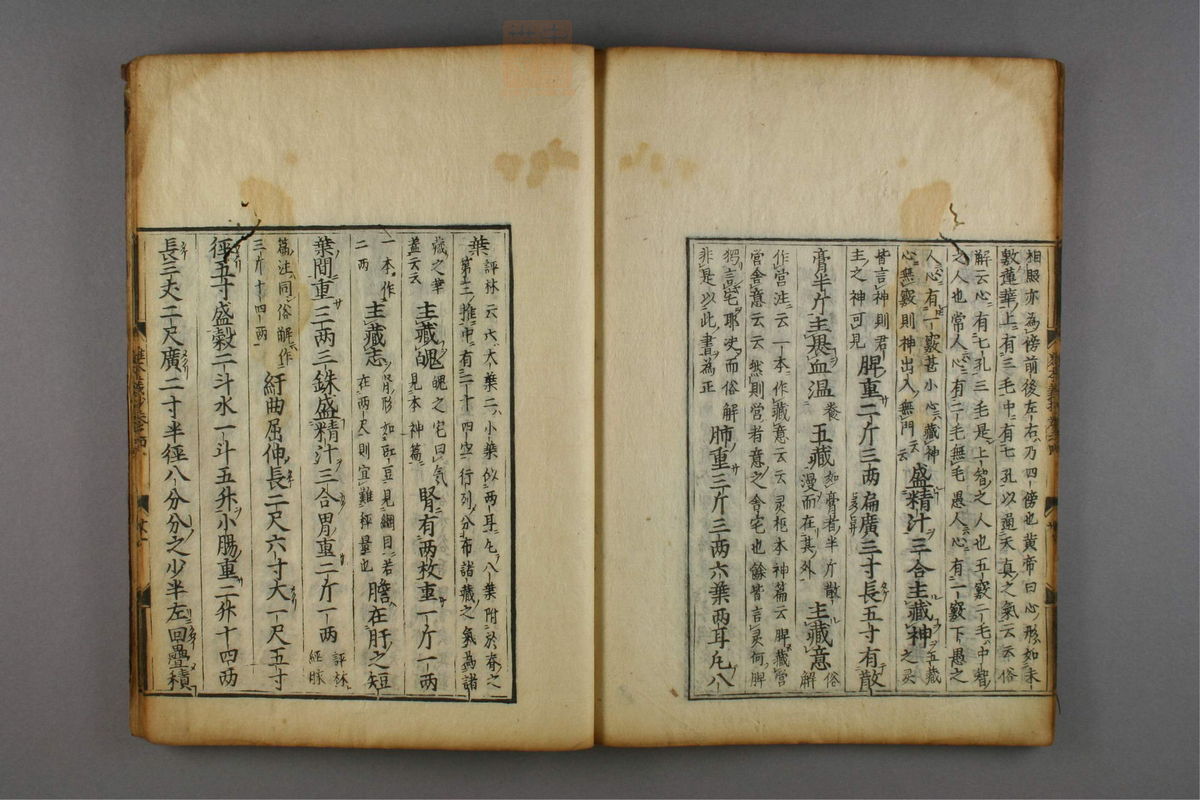 相照亦為傍前後左右乃四傍也黄帝曰心形如未
敷蓮華上有三毛中有七孔以通天真之氣云云俗
解云心有七孔三毛是上智之人也五竅二毛中智
之人也常人心有二毛無毛愚人心有一竅下愚之
人心有一竅甚小心藏神
心無竅則神出入無門云云
盛精汁三合主藏神
五藏
之灵
皆言神則君
主之神可見
脾重二斤三两扁廣三寸長五寸有散
膏半斤主裹血温
養
五藏
如膏者半斤散
漫而在其外
主藏意
俗
解
作営注云一本作藏意云云灵枢本神篇云脾藏営
営舎意云云然則営者意之舎宅也餘皆言灵何脾
獨言宅耶史而俗解
非是以此書為正
肺重三斤三两六葉两耳凢八
葉
評林云六大葉二小葉似两耳凢八葉附於脊之
第三推中有二十四空行列分布諸藏之氣為諸
蔵之華
盖云云
主藏魄
魄之宅曰氣
見本神篇
腎有两枚重一斤一两
一本作
二两
主藏志
腎形如豇豆見綱目若
在两尺則宜難秤量也
膽在肝之短
葉間重三两三銖盛精汁三合胃重二斤一两
評林
經脉
篇注同俗解作
三斤十四两
紆曲屈伸長二尺六寸大一尺五寸
徑五寸盛穀二斗水一斗五升小腸重二斤十四两
長三丈二尺廣二寸半徑八分分之少半左回疊積